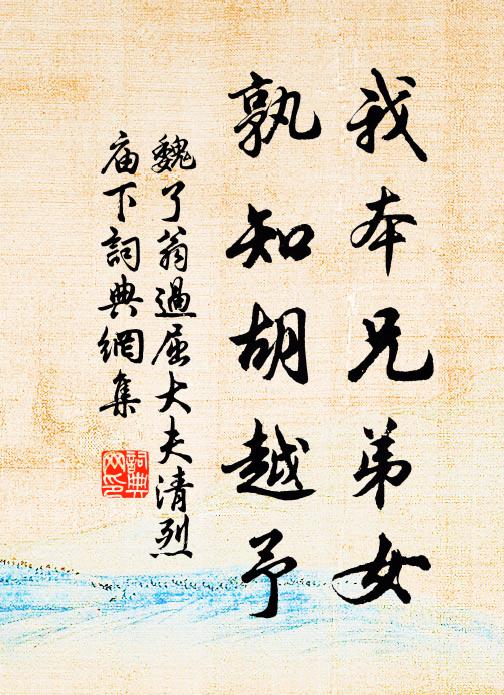 我本兄弟女
孰知胡越予
魏了翁過屈大夫清烈
庙下詞典網集
詞典网印